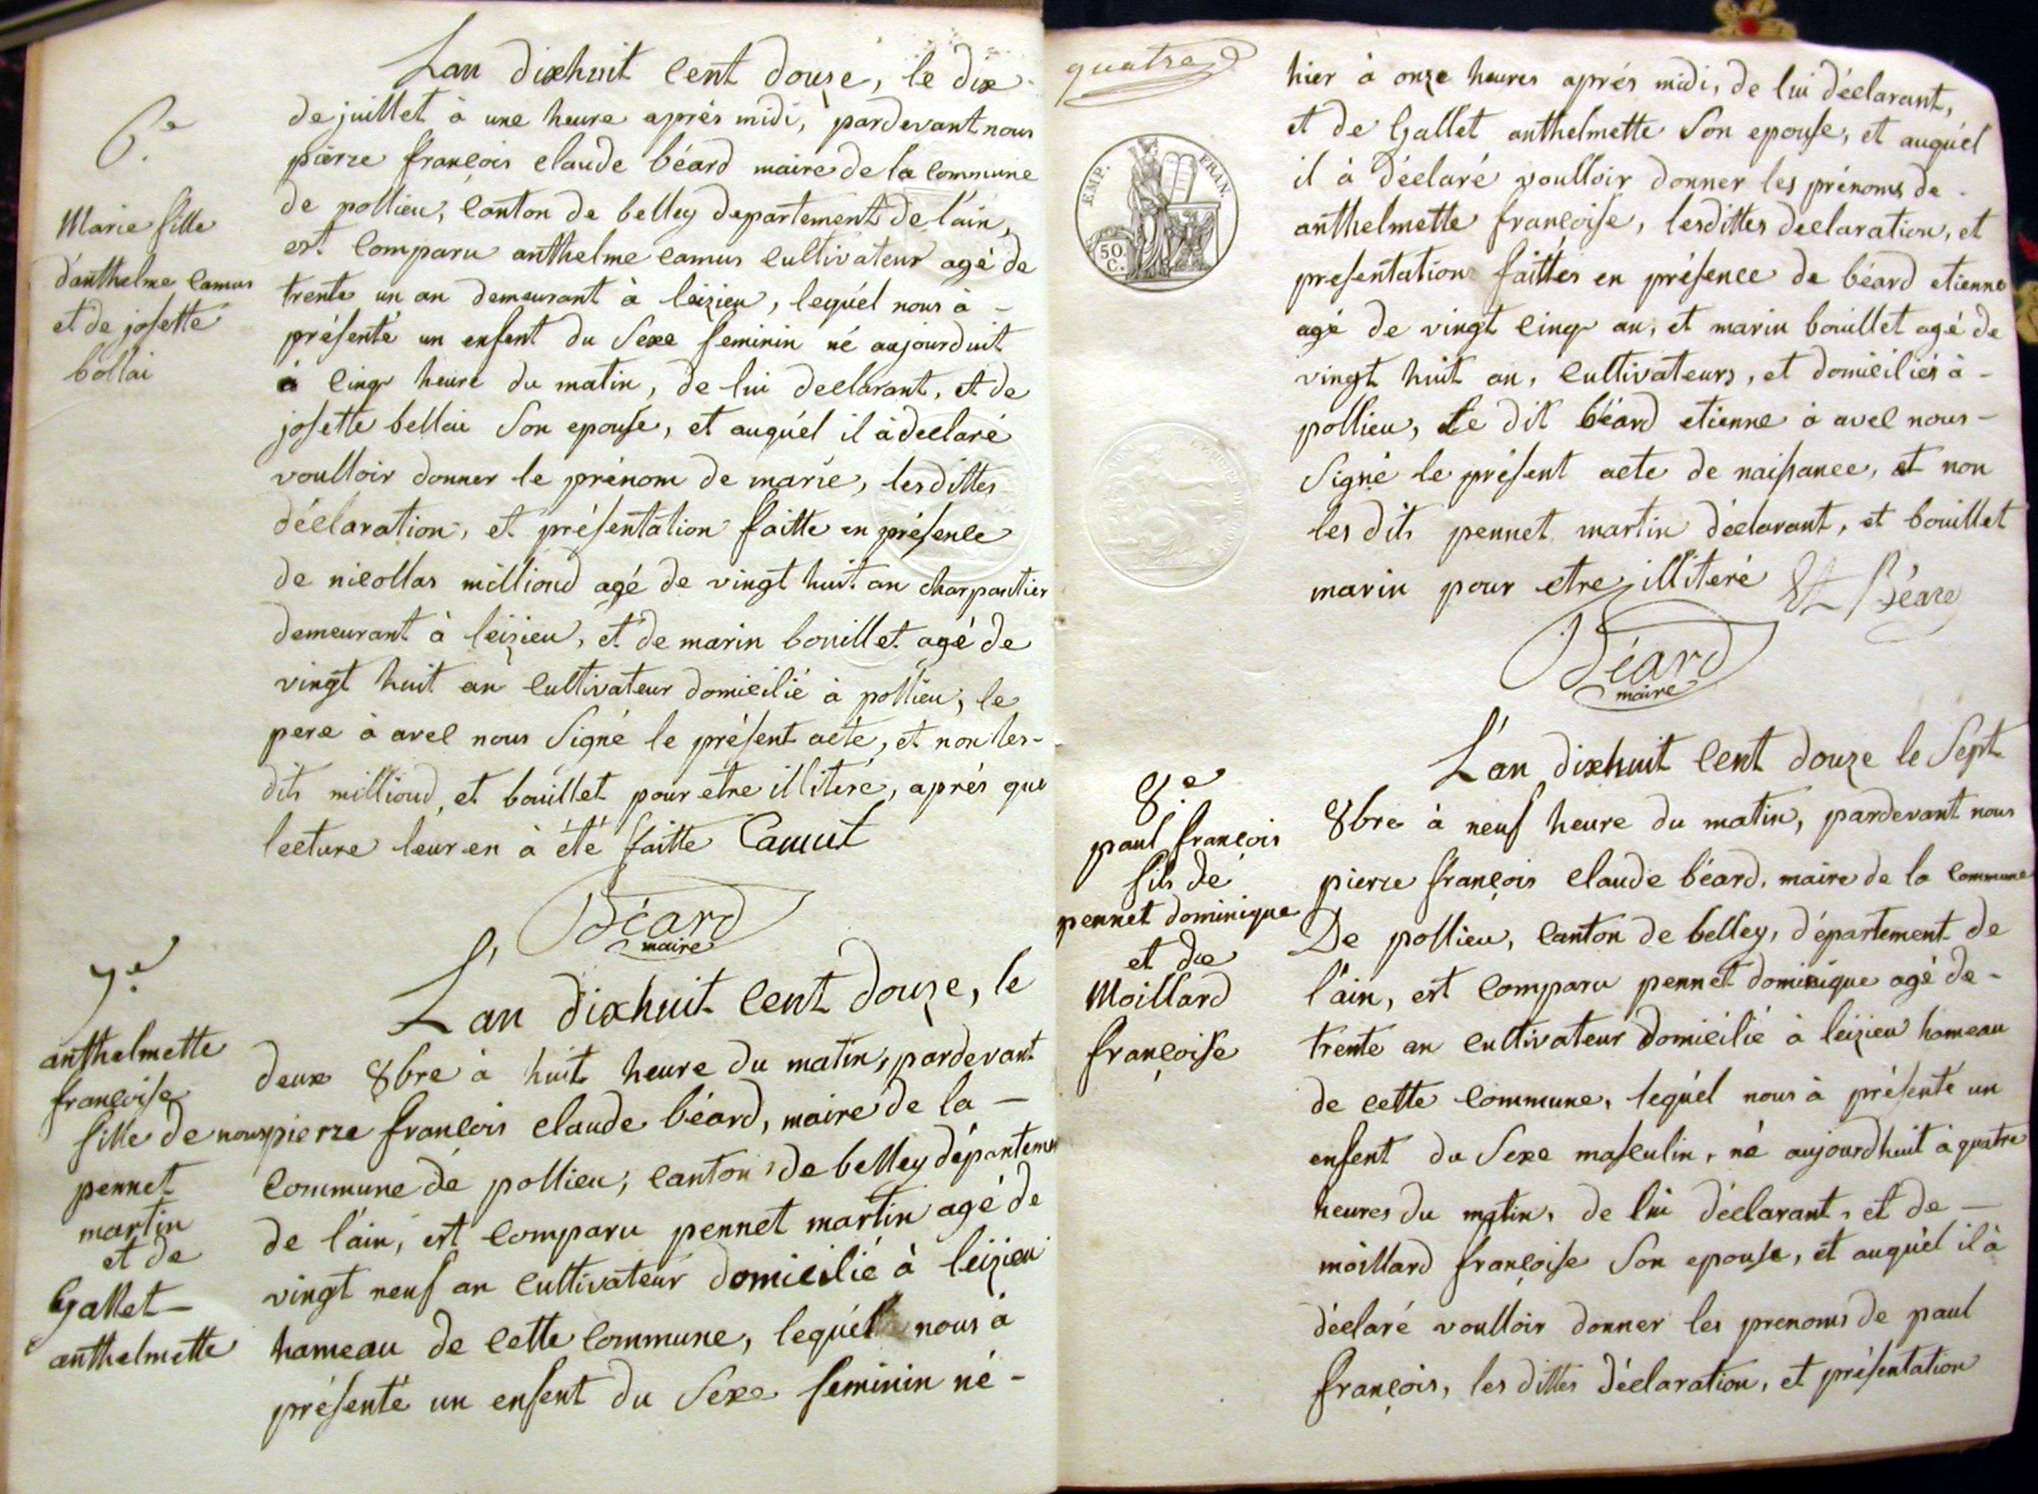 6.e
Marie fille
d'anthelme Camus
et de josette
bollai
Lan dixhuit Cent douze, le dix
de juillet à une heure aprés midi, pardevant nous
pierre françois claude béard maire de la Commune
de pollieu, Canton de belley departement de l'ain,
est Comparu anthelme camus Cultivateur agé de
trente un an demeurant à leizieu, lequél nous à -
présenté un enfent du Sexe feminin né aujourduit
à Cinq heure du matin, de lui declarant, et de
josette bellai Son epouse, et auquél il à declaré
voulloir donner le prénom de marie, lesdittes
déclaration, et présentation faitte en présence
de nicollas milliond agé de vingt huit an charpantier
demeurant à leizieu, et de marin bouillet agé de
vingt huit an Cultivateur domicilié à pollieu, le
pere à avec nous Signé le présent acte, et non les-
dits milliond, et bouillet pour etre illiteré, aprés que
lecture leur en à été faitte Camut
Béard
maire
7.e
anthelmette
françoise
fille de
pennet
martin
et de
Gallet -
anthelmette
L'an dixhuit Cent douze, le
deux 8bre à huit heure du matin, pardevant
nous pierre françois claude béard, maire de la -
Commune de pollieu, canton de belley départeme
de l'ain, est Comparu pennet martin agé de
vingt neuf an Cultivateur domicilié à leizieu
hameau de Cette Commune, lequél nous à
présenté un enfent du Sexe feminin né -
quatre
EMP. FRAN.
50.
C.
hier à onze heures aprés midi, de lui déclarant,
et de Gallet anthelmette Son epouse, et auquél
il à déclaré voulloir donner les prénoms de
anthelmette françoise, lesdittes declaration, et
presentation faittes en présence de béard etienne
agé de vingt Cinq an, et marin bouillet agé de
vingt huit an, Cultivateurs, et domiciliés à -
pollieu, Le dit béard etienne à avec nous -
Signé le présent acte de naissance, et non
les dits pennet martin déclarant, et bouillet
marin pour etre illiteré Et Béard
Béard
maire
8.e
paul françois
fils de
pennet dominique
et de
Moillard
françoise
L'an dixhuit Cent douze le Sept
8bre à neuf heure du matin, pardevant nous
pierre françois claude béard, maire de la Commune
De pollieu, Canton de belley, département de
l'ain, est Comparu pennet dominique agé de -
trente an Cultivateur domicilié à leizieu hameau
de cette Commune, lequél nous à présenté un
enfent du Sexe masculin, né aujourdhuit à quatre
heures du matin, de lui déclarant, et de -
moillard françoise Son epouse, et auquél il à
déclaré voulloir donner les prenoms de paul
françois, les dittes déclaration, et présentation